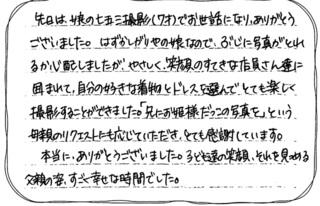 先日は、娘の七五三撮影(7才)でお世話になり、ありがとう
ございました。はずかしがりやの娘なので、ぶじに写真がとれ
るか心配しましたが、やさしく、笑顔のすてきな店員さん達に
囲まれて、自分の好きな着物とドレスを選んでとても楽しく
撮影することができました。「兄にお姫様だっこの写真を」という
母親のリクエストにも応じていただき、とても感謝しています。
本当に、ありがとうございました。子ども達の笑顔、それを見つめる
父親の姿、すごく幸せな時間でした。